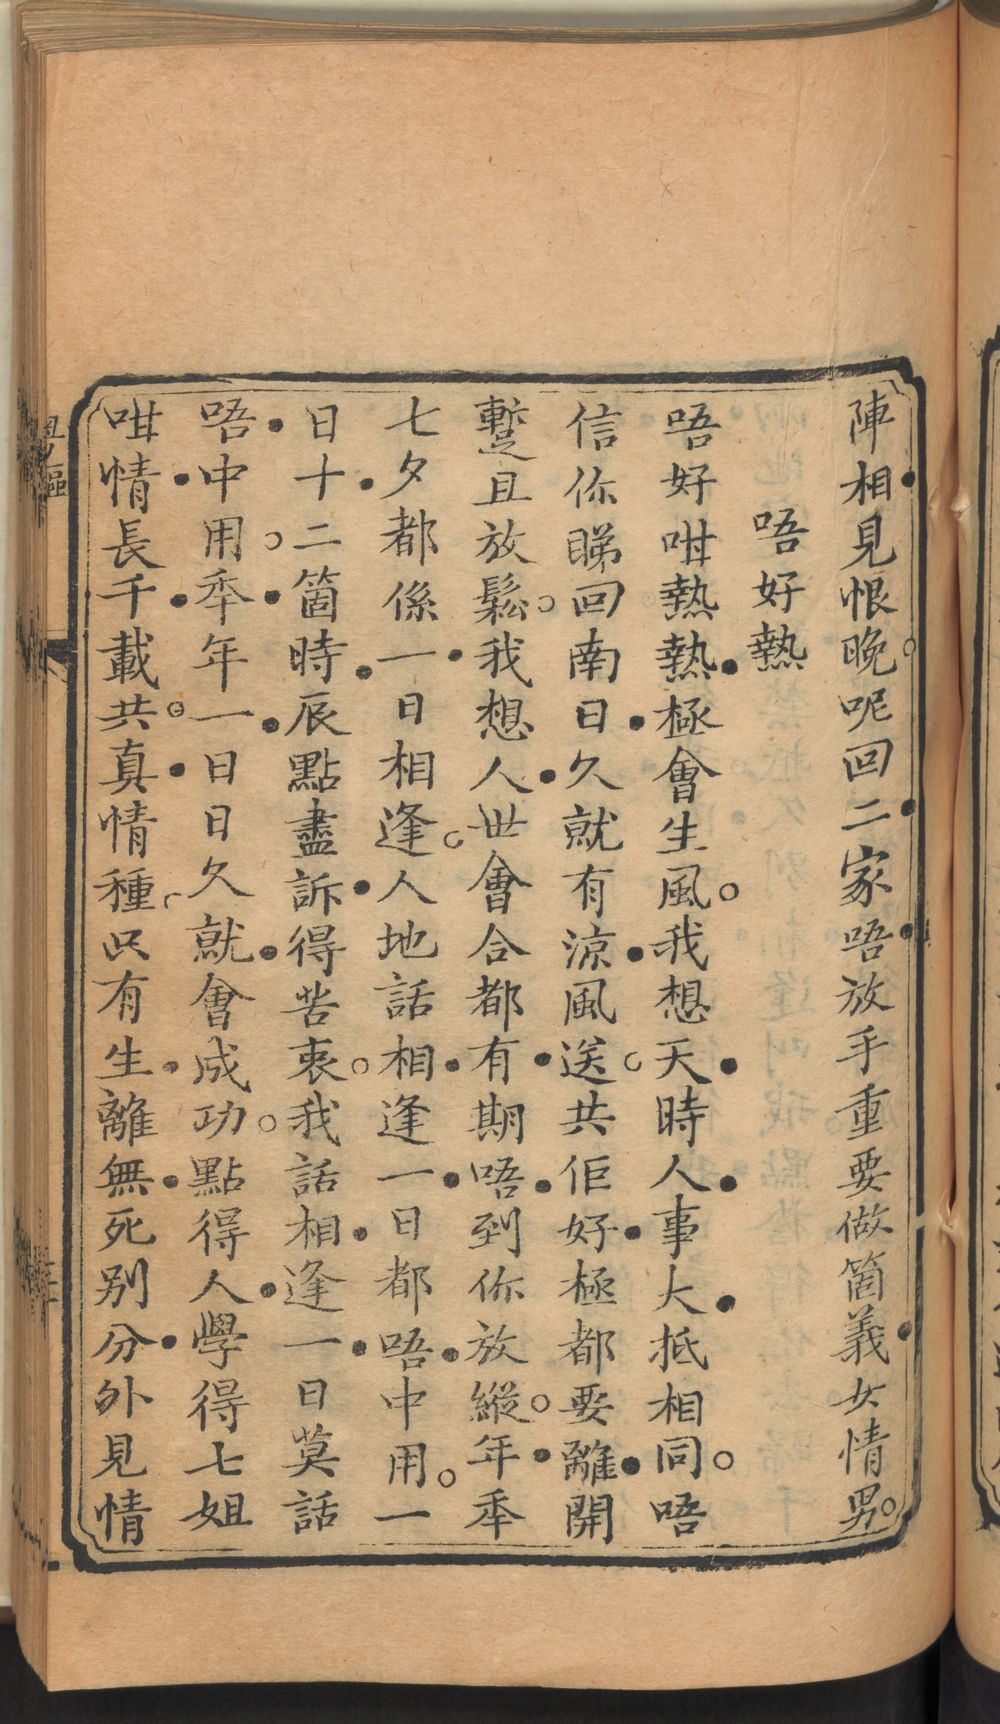 陣相見恨晚呢回二家唔放手重要做箇義女情男
唔好熱
唔好咁熱熱極會生風我想天時人事大抵相同唔
信你睇回南日久就有涼風送共佢好極都要離開
蹔且放鬆我想人世會合都有期唔到你放縱年秊
七夕都係一日相逢人地話相逢一日都唔中用一
日十二箇時辰點盡訴得苦衷我話相逢一日莫話
唔中用秊年一日日久就會成功點得人學得七姐
咁情長千載共真情種只有生離無死別分外見情